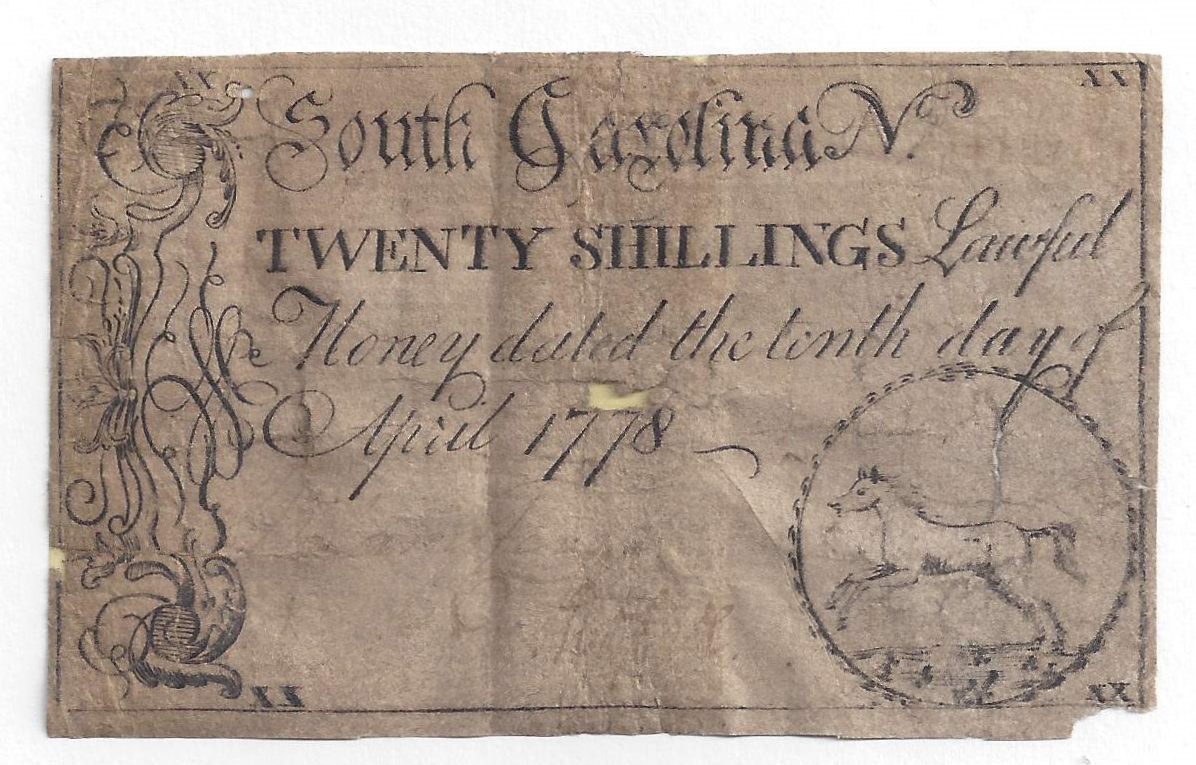 XX XX
South Carolina No.
TWENTY SHILLINGS Lawful
Money dated the tenth day of
April 1778
XX XX